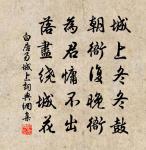 城上冬冬鼓
朝衙復晚衙
為君慵不出
落盡繞城花
白居易城上詞典網集